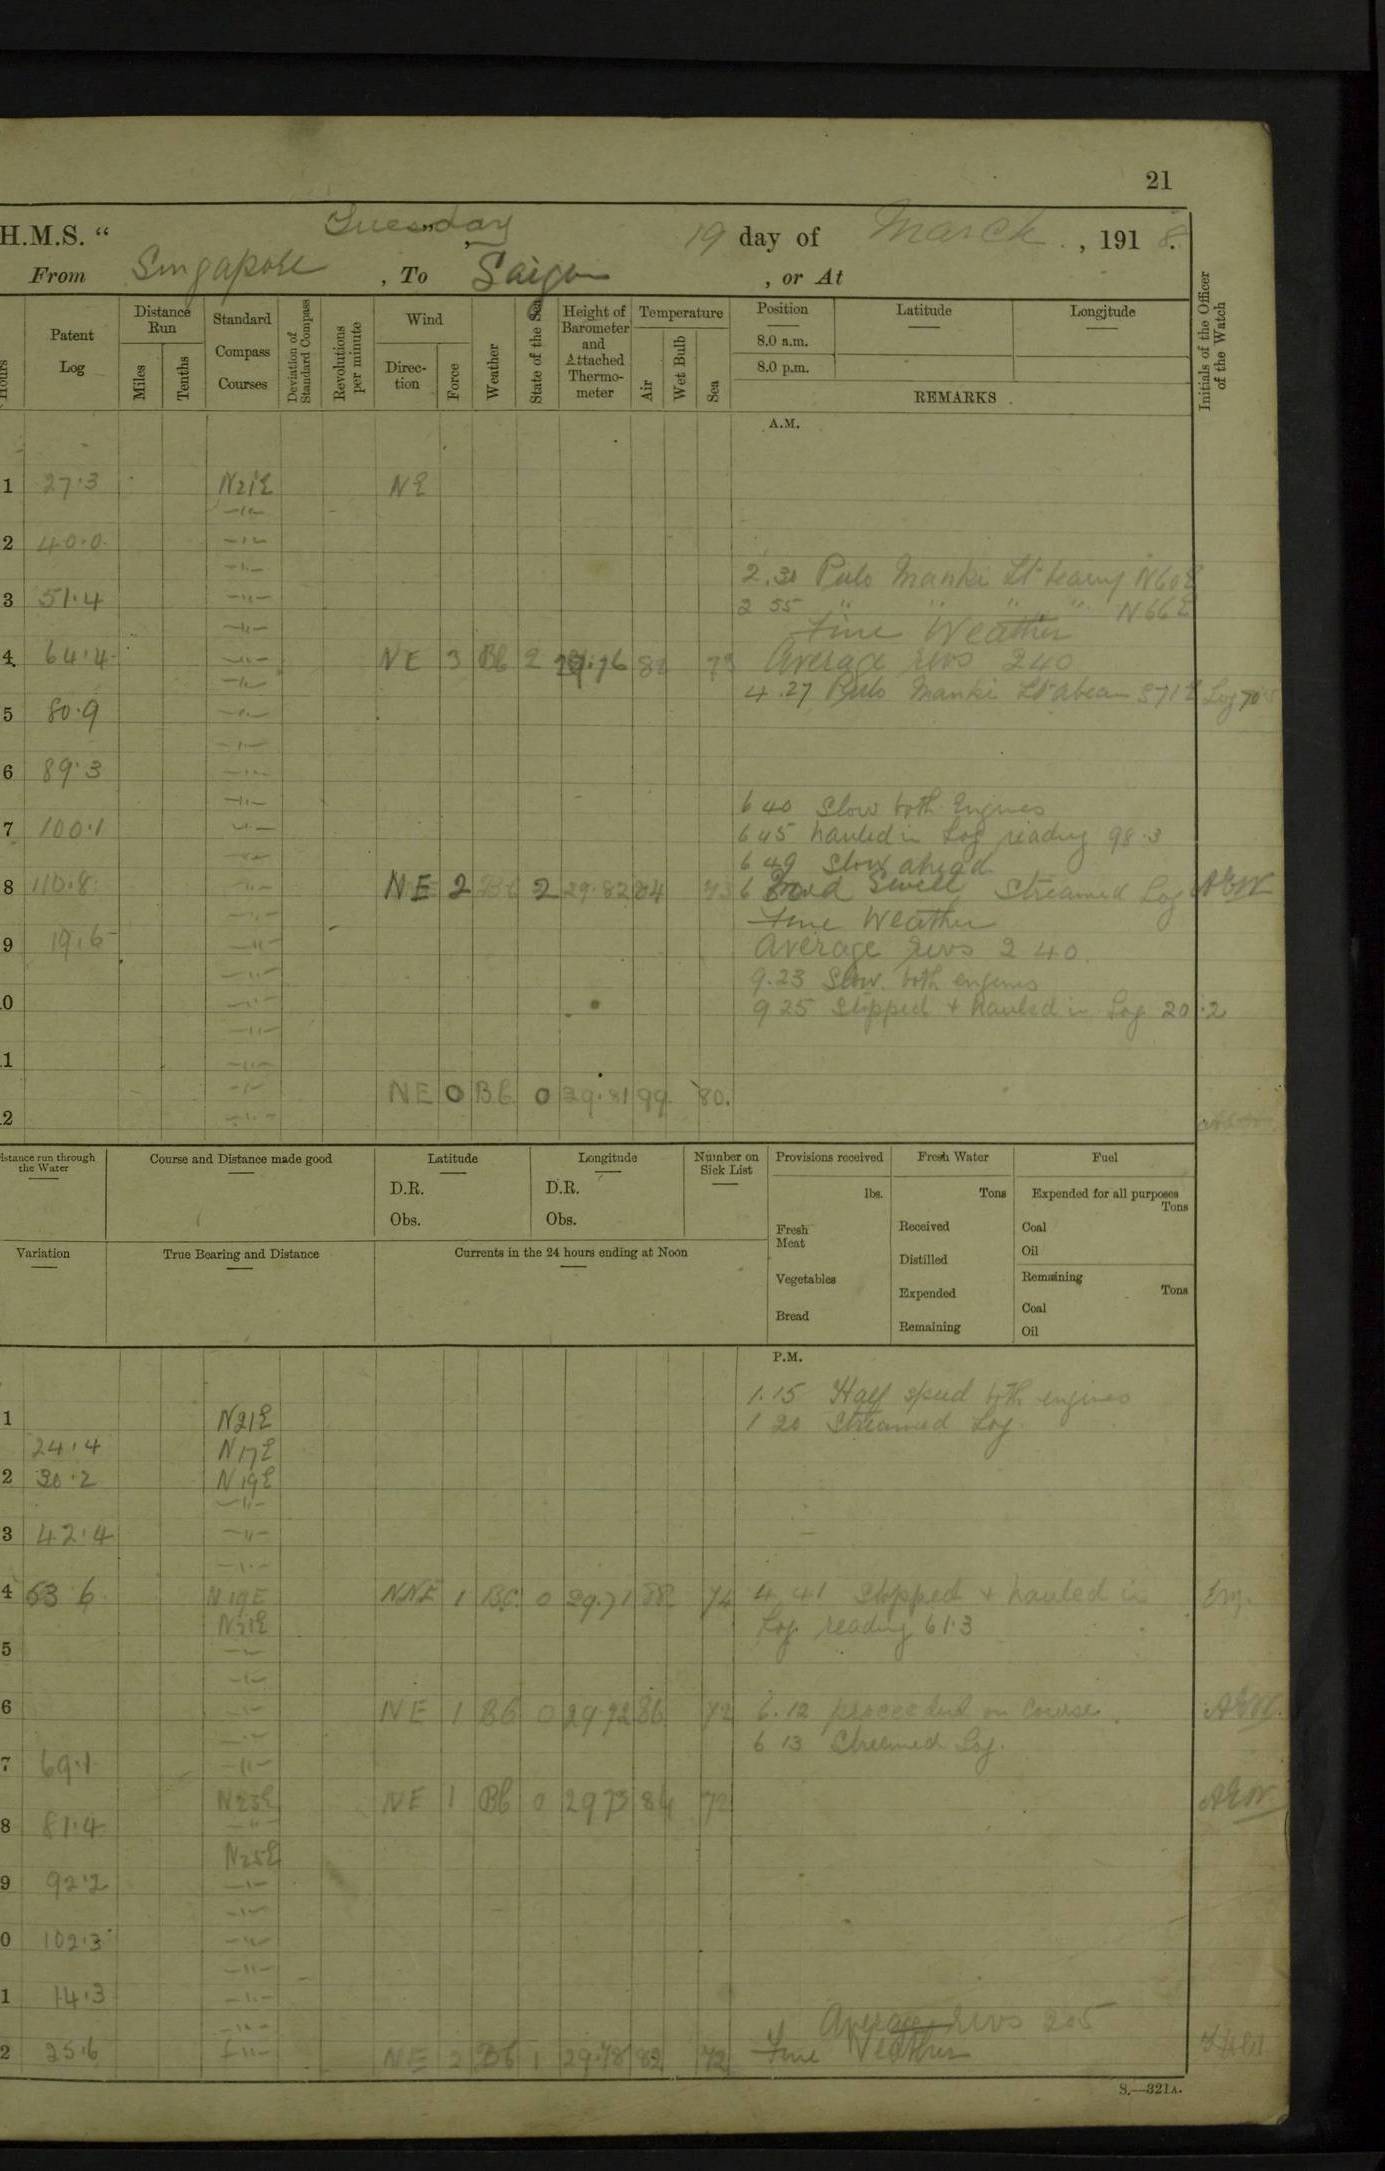 21
H.M.S. “ Tuesday 19 day of March , 191 8.
From Singapore , To Saigon , or At
Hours
Patent Log
Distance Run
Miles
Tenths
Standard Compass Courses
Deviation of Standard Compass
Revolutions per minute
Wind
Direction
Force
Weather
State of the Sea
Height of Barometer and Attached Thermometer
Temperature
Air
Wet Bulb
Sea
Position
8.0 a.m.
8.0 p.m.
Latitude
Longitude
REMARKS
Initials of the Officer of the Watch
A.M.
1 27.3 N21E NE
2 40.0
2.30 Pulo Manki Lt bearing N60E
3 51.4
2 55 " " " " N66E
Fine Weather
4 64.4 NE 3 Bb 2 Average revs 240
4.27 Pulo Manki Lt abeam S71E Log 70
5 80.9
6 89.3
6 40 Slow both Engines
7 100.1
6 45 hauled in Log reading 98.3
6 49 Slow ahead
8 110.8 NE 2 Bb 2 29.82 84 73 Swell Streamed Log AEW
Fine Weather
9 19.6 Average revs 240.
9.23 Slow both engines
0
9 25 Stopped + hauled in Log 20.2
1
NE 0 Bb 0 29.81 99 80.
2
Distance run through the Water
Course and Distance made good
Latitude
D.R.
Obs.
Longitude
D.R.
Obs.
Number on Sick List
Provisions received
lbs.
Fresh Meat
Vegetables
Bread
Fresh Water
Tons
Received
Distilled
Expended
Remaining
Fuel
Expended for all purposes
Tons
Coal
Oil
Remaining
Tons
Coal
Oil
Variation
True Bearing and Distance
Currents in the 24 hours ending at Noon
P.M.
1.15 Half speed both engines
1 N21E 1 20 Streamed Log
24.4 N17E
2 30.2 N19E
3 42.4
4 53 6 N19E NNE 1 0 29.71 88 74 4.41 Stopped + hauled in
N21E Log reading 61.3
5
6 NE 1 Bb 0 29 72 86 72 6.12 proceeded on course AEW
6 13 Streamed Log.
7 69.1
N23E NE 1 Bb 0 29 73 84 72 AEW
8 81.4
N25E
9 92.2
0 102.3
1 14.3
Average revs 205
2 25.6 NE 2 Bb 1 29.78 82 72 Fine Weather
S.—321A.